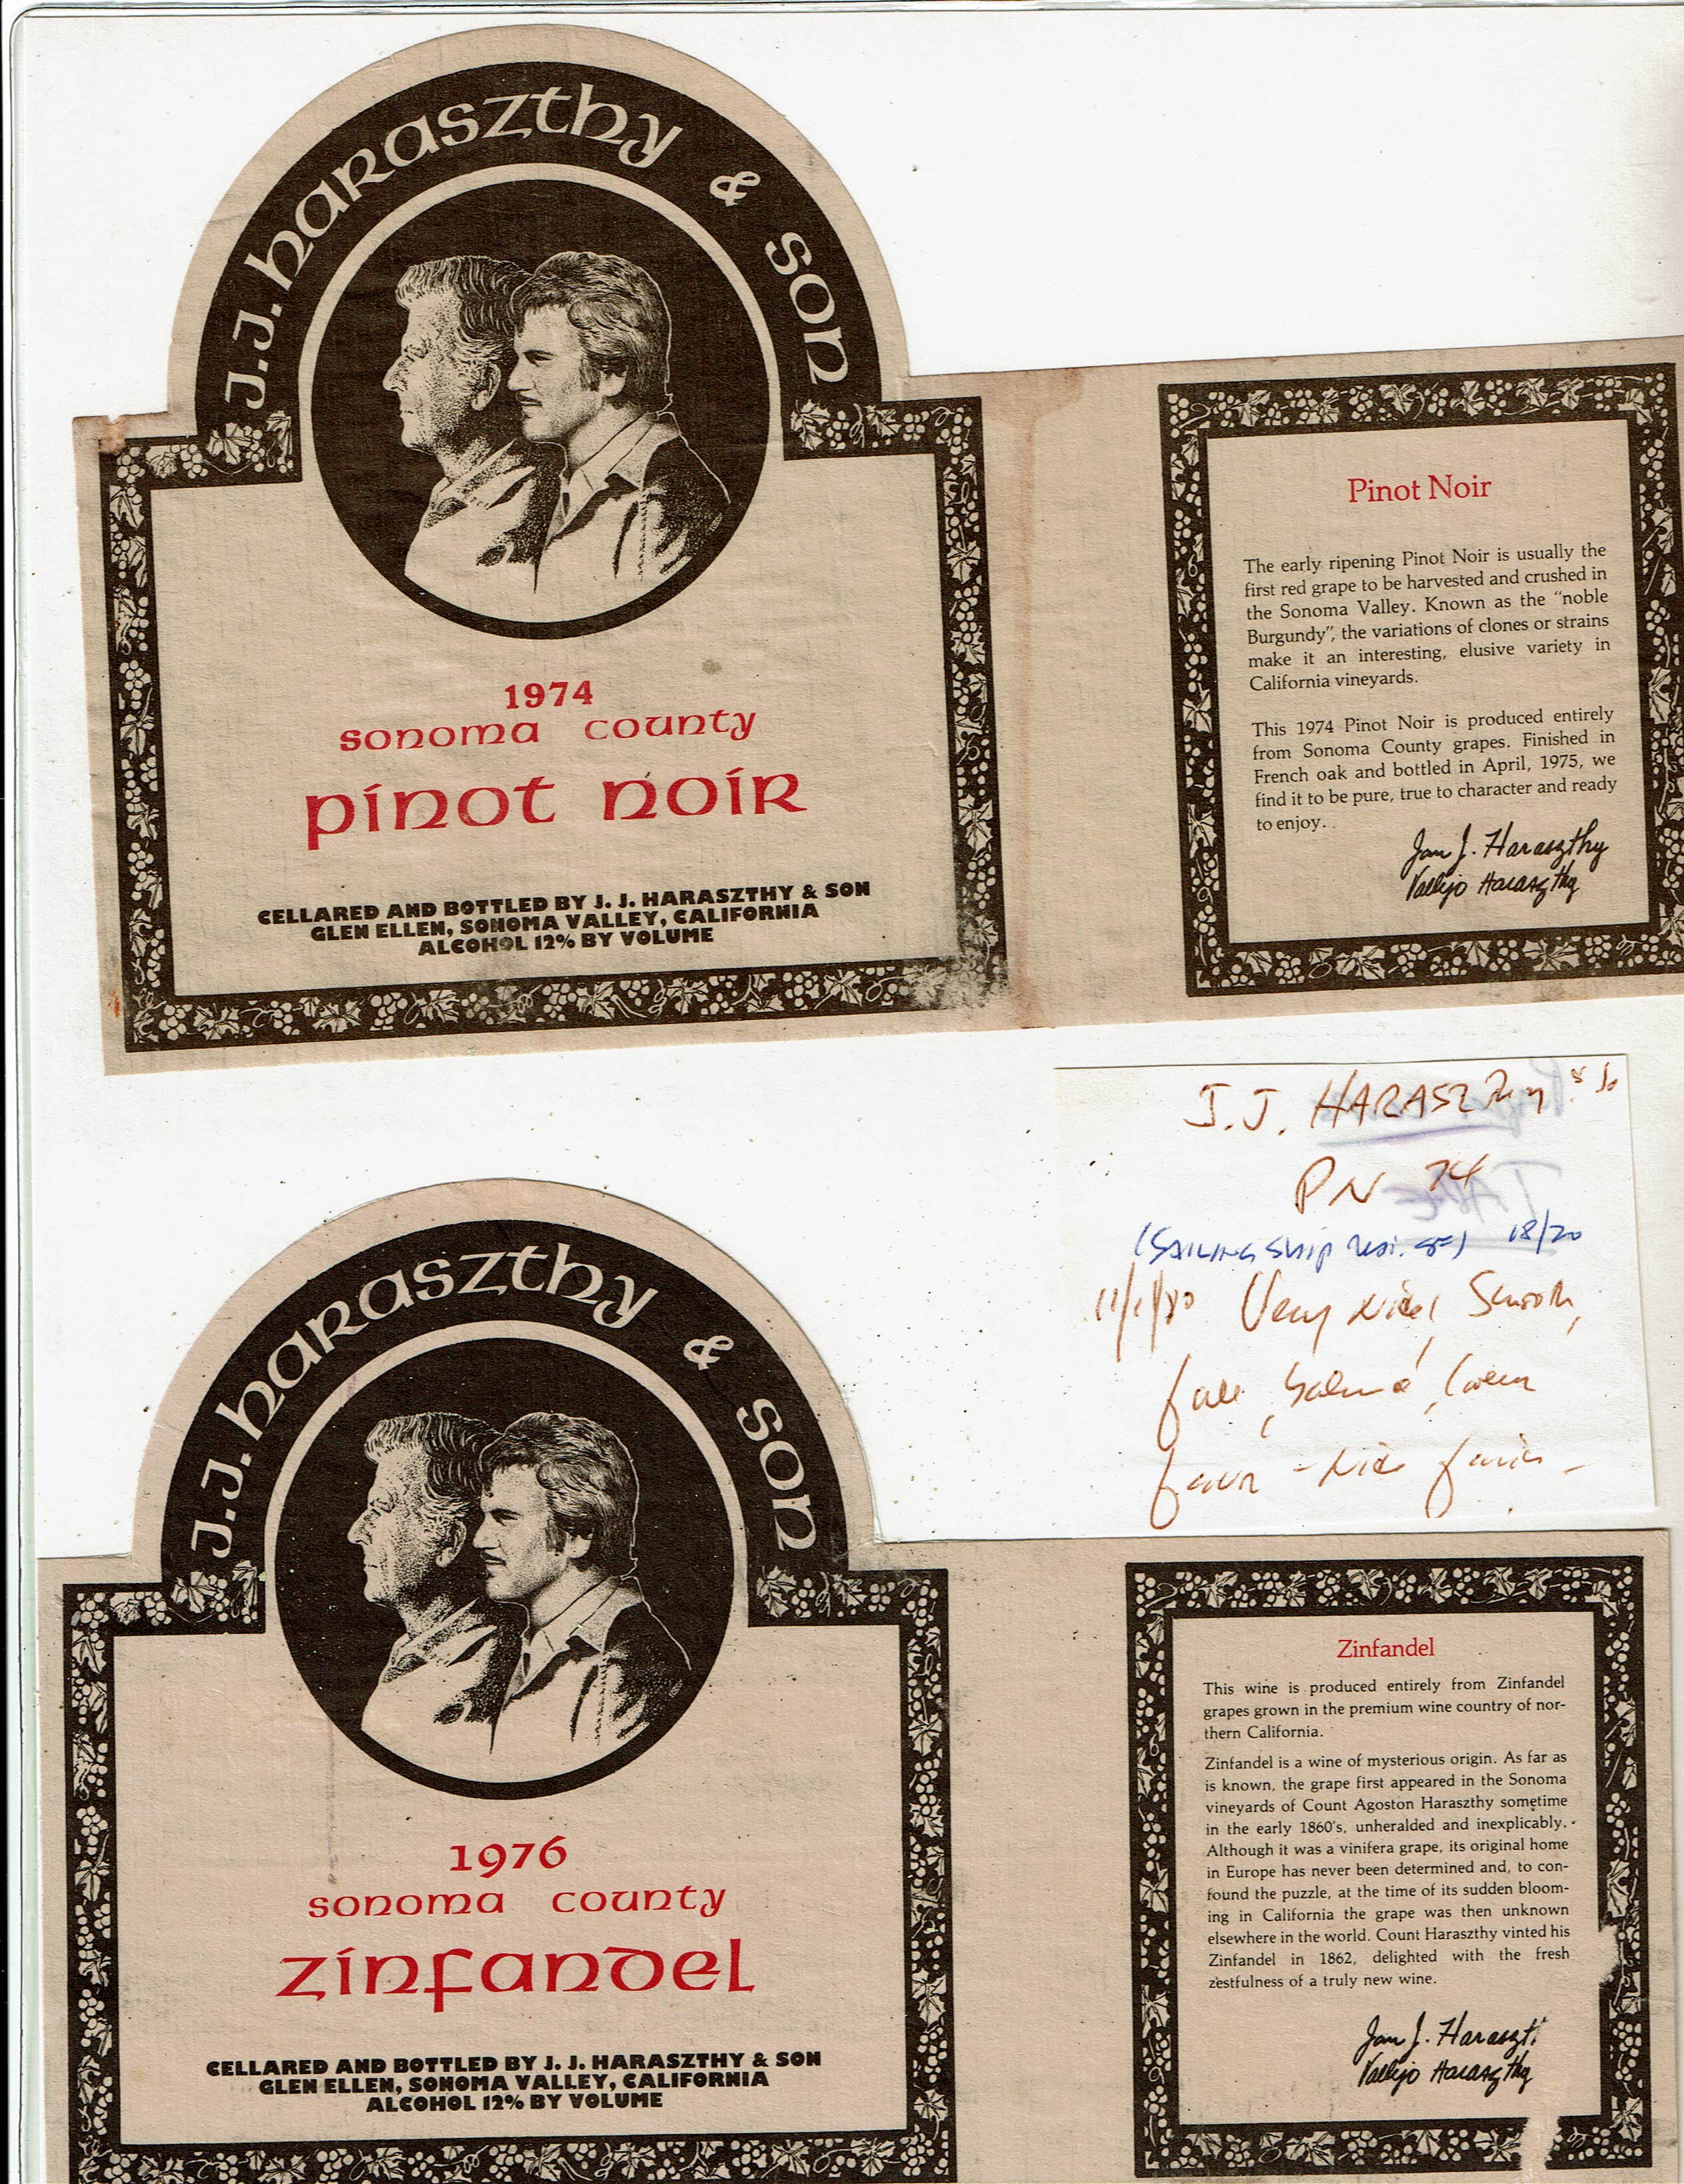 J.J. haraszthy & son
1974
sonoma county
pinot noir
CELLARED AND BOTTLED BY J. J. HARASZTHY & SON
GLEN ELLEN, SONOMA VALLEY, CALIFORNIA
ALCOHOL 12% BY VOLUME
Pinot Noir
The early ripening Pinot Noir is usually the
first red grape to be harvested and crushed in
the Sonoma Valley. Known as the “noble
Burgundy”, the variations of clones or strains
make it an interesting, elusive variety in
California vineyards.
This 1974 Pinot Noir is produced entirely
from Sonoma County grapes. Finished in
French oak and bottled in April, 1975, we
find it to be pure, true to character and ready
to enjoy.
Jan J. Haraszthy
Vallejo Haraszthy
J.J. HARASZTHY
PN 74
(SAILING Ship 18/20
Very nice, Smooth,
nice
J.J. haraszthy & son
1976
sonoma county
zinfandel
CELLARED AND BOTTLED BY J. J. HARASZTHY & SON
GLEN ELLEN, SONOMA VALLEY, CALIFORNIA
ALCOHOL 12% BY VOLUME
Zinfandel
This wine is produced entirely from Zinfandel
grapes grown in the premium wine country of nor-
thern California.
Zinfandel is a wine of mysterious origin. As far as
is known, the grape first appeared in the Sonoma
vineyards of Count Agoston Haraszthy sometime
in the early 1860's, unheralded and inexplicably.
Although it was a vinifera grape, its original home
in Europe has never been determined and, to con-
found the puzzle, at the time of its sudden bloom-
ing in California the grape was then unknown
elsewhere in the world. Count Haraszthy vinted his
Zinfandel in 1862, delighted with the fresh
zestfulness of a truly new wine.
Jan J. Haraszt
Vallejo Haraszthy